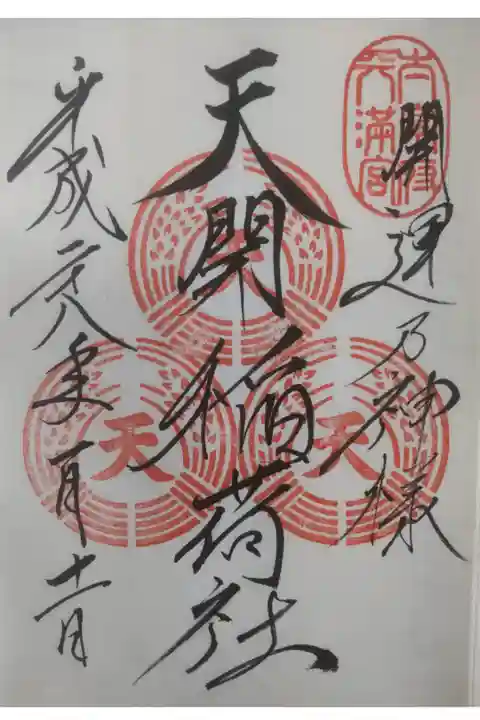 太宰府
天満宮
開運乃神様
天開稲荷社
天
天
平成廿八年一月十一日